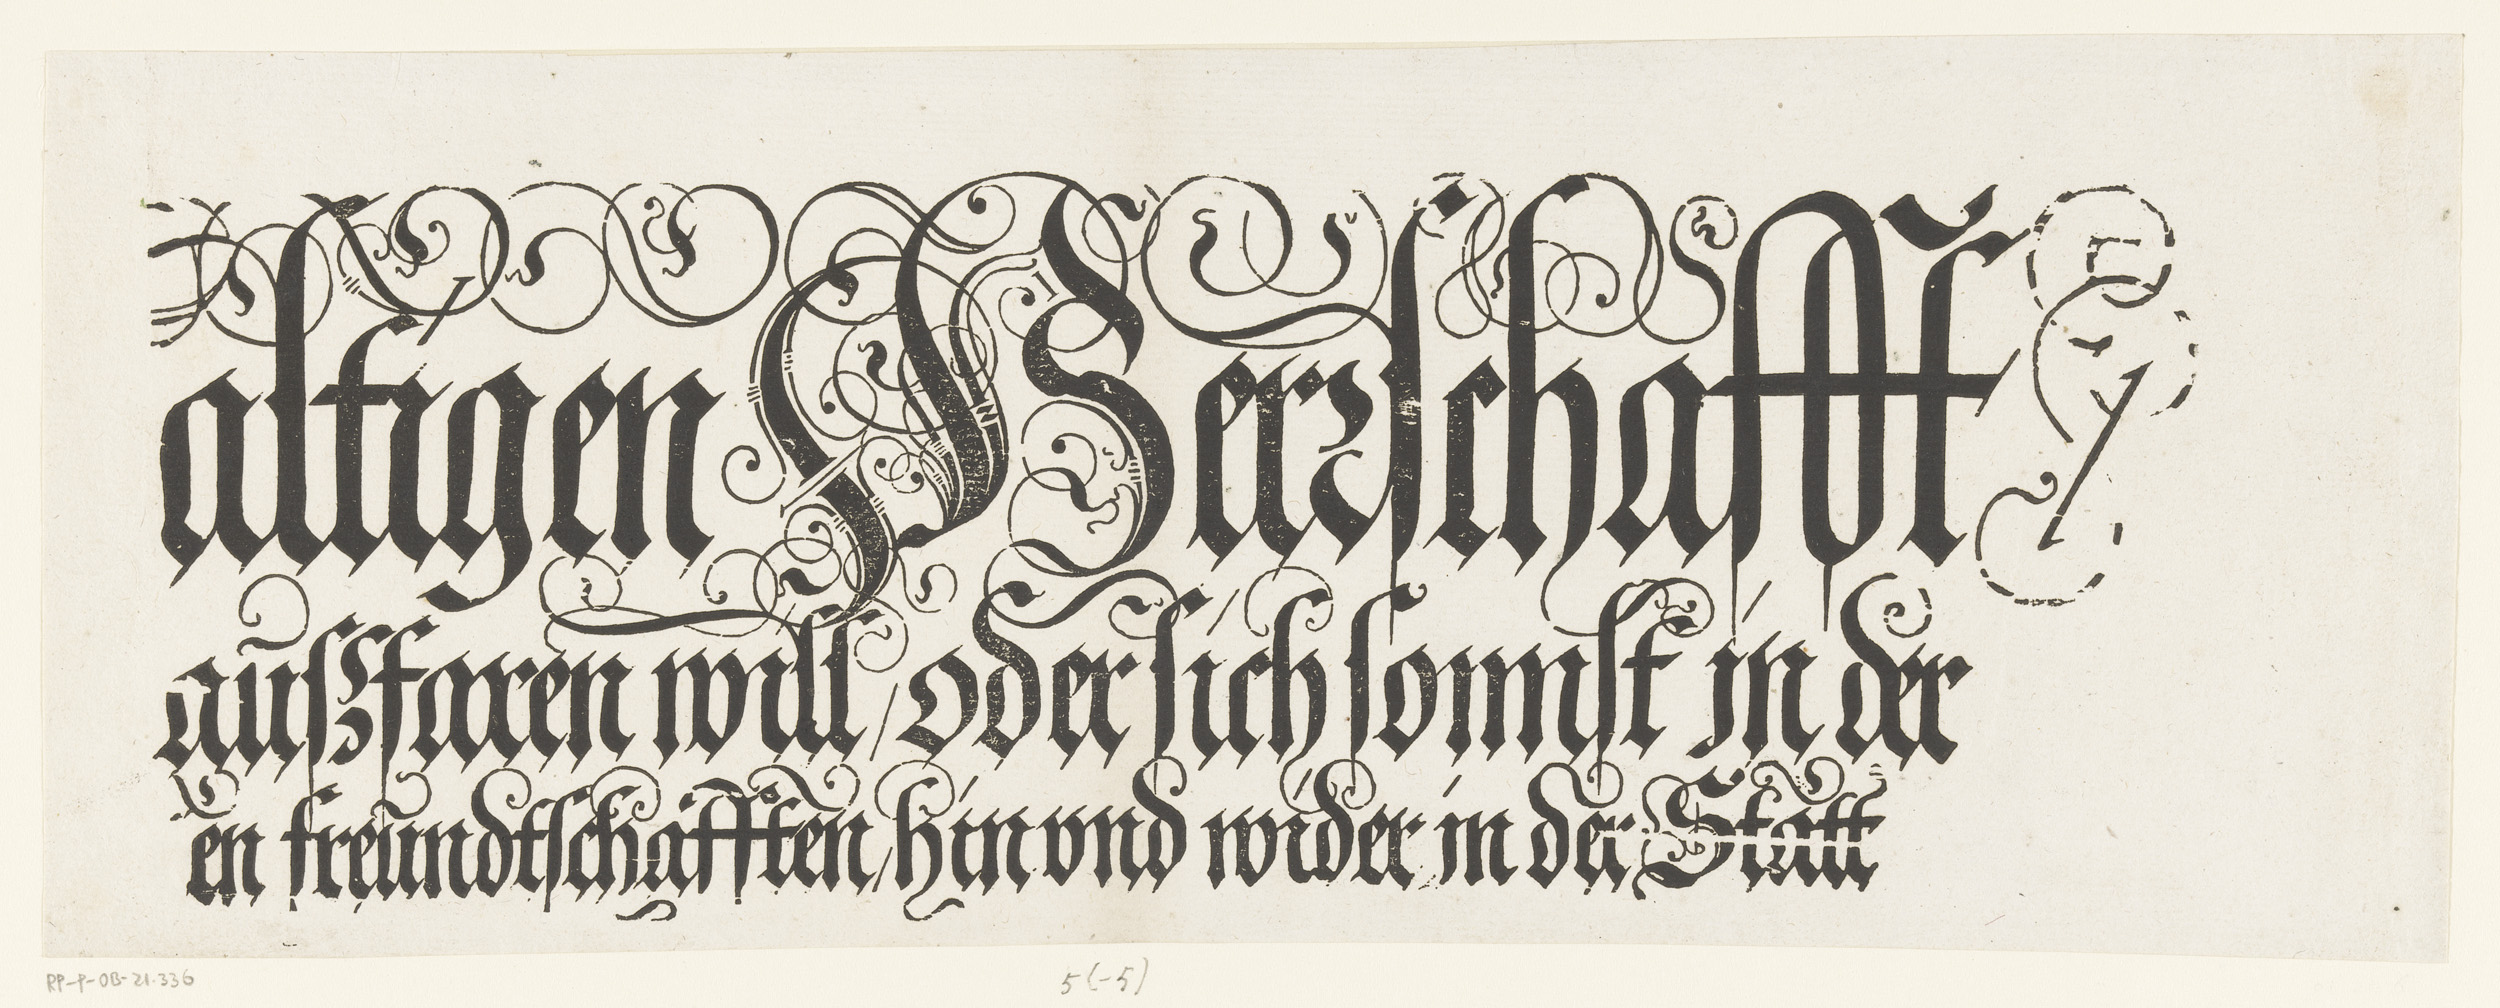 altigen Herꝛschafft
außfaren will / oder sich sonnst in der
en freundtschafften / hin vnd wider in der Statt
RP-P-OB-21.336
5(-5)